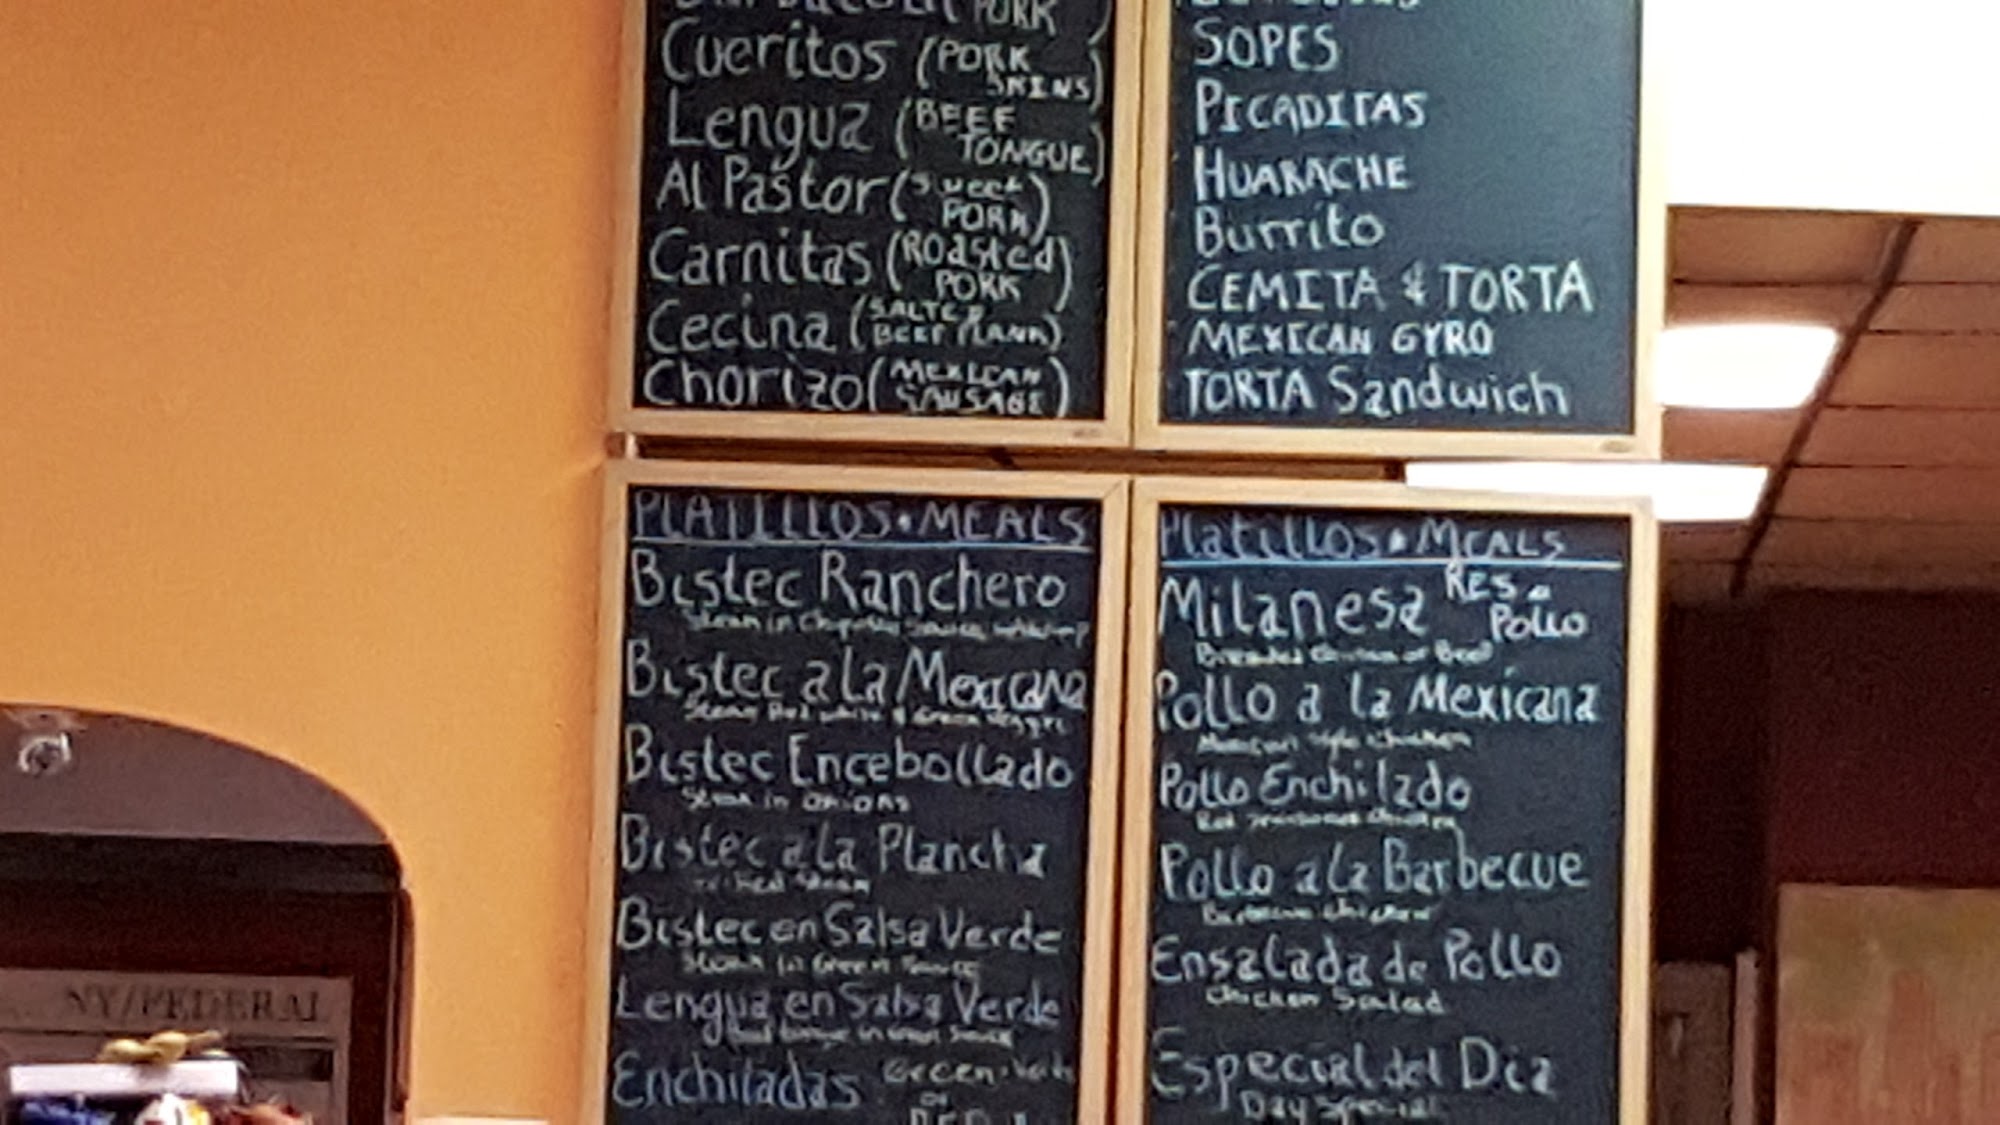 PORK
Cueritos (PORK
SKINS)
Lengua (BEEF
TONGUE)
Al Pastor (Sweet
PORK)
Carnitas (Roasted)
PORK)
Cecina (SALTED
BEEF PLANK)
Chorizo (MEXICAN
SAUSAGE)
SOPES
PICADITAS
HUARACHE
Burrito
CEMITA & TORTA
MEXICAN GYRO
TORTA Sandwich
PLATILLOS • MEALS
Bistec Ranchero
Steak in Chipotle Sauce
Bistec a La Mexicana
Steak Red white & Green Veggie
Bistec Encebollado
Steak in Onions
Bistec a La Plancha
Steak
Bistec en Salsa Verde
Steak in Green Sauce
Lengua en Salsa Verde
Beef tongue in Green Sauce
Enchiladas Green
or
RED
Platillos • MEALS
Milanesa RES o
Pollo
Breaded Chicken or Beef
Pollo a la Mexicana
Mexican Style Chicken
Pollo Enchilado
Red Chicken
Pollo a La Barbecue
Barbecue Chicken
Ensalada de Pollo
Chicken Salad
Especial del Dia
Day Special
NY/FEDERAL